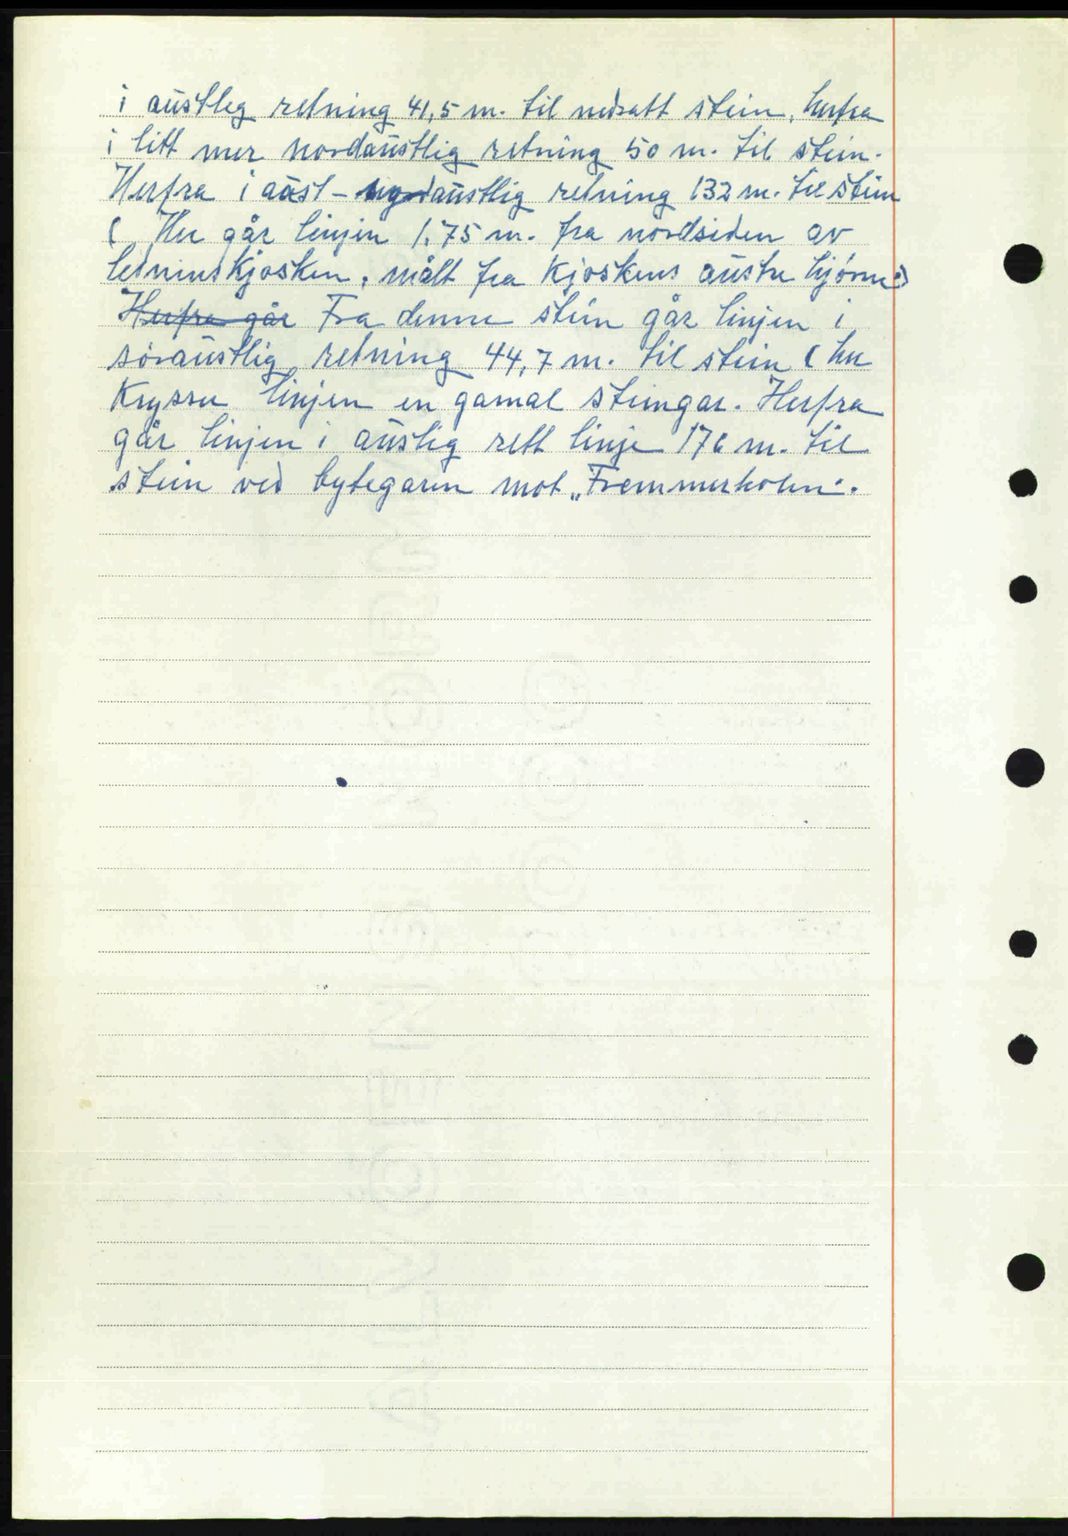 i austleg retning 41,5 m. til nedsatt stein, herfra
i litt mer nordaustlig retning 50 m. til stein.
Herfra i aust - nordaustlig retning 132 m. til stein
( Her går linjen 1,75 m. fra nordsiden av
ledninskjosken, målt fra kjoskens austre hjørne.)
Herfra går Fra denne stein går linjen i
söraustlig retning 44,7 m. til stein ( her
krysser linjen en gamal steingar. Herfra
går linjen i auslig rett linje 176 m. til
stein ved bytegaren mot „Fremmerholen".